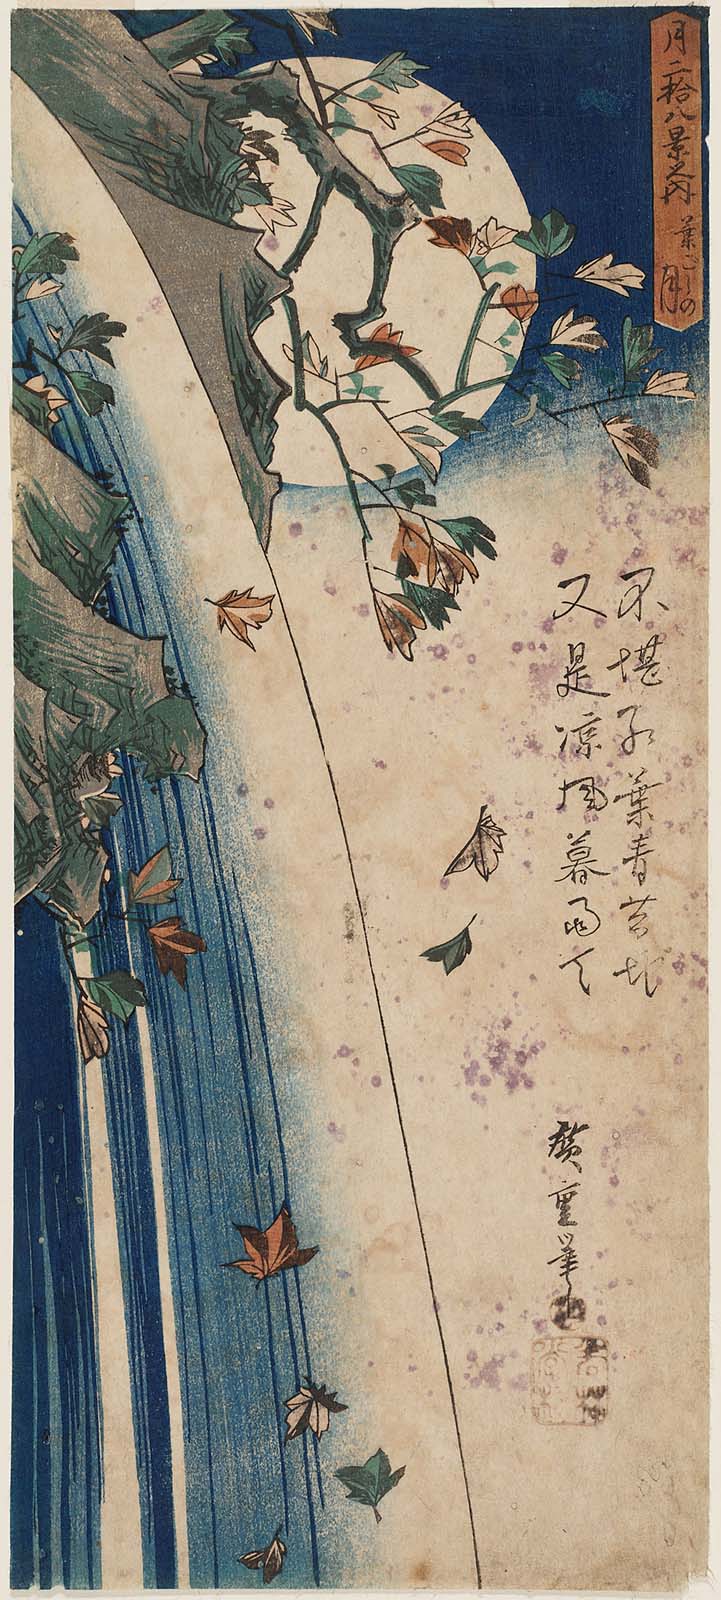 月二拾八景之内 葉ごしの月
不堪紅葉青苔地
又是涼風暮雨天
廣重筆